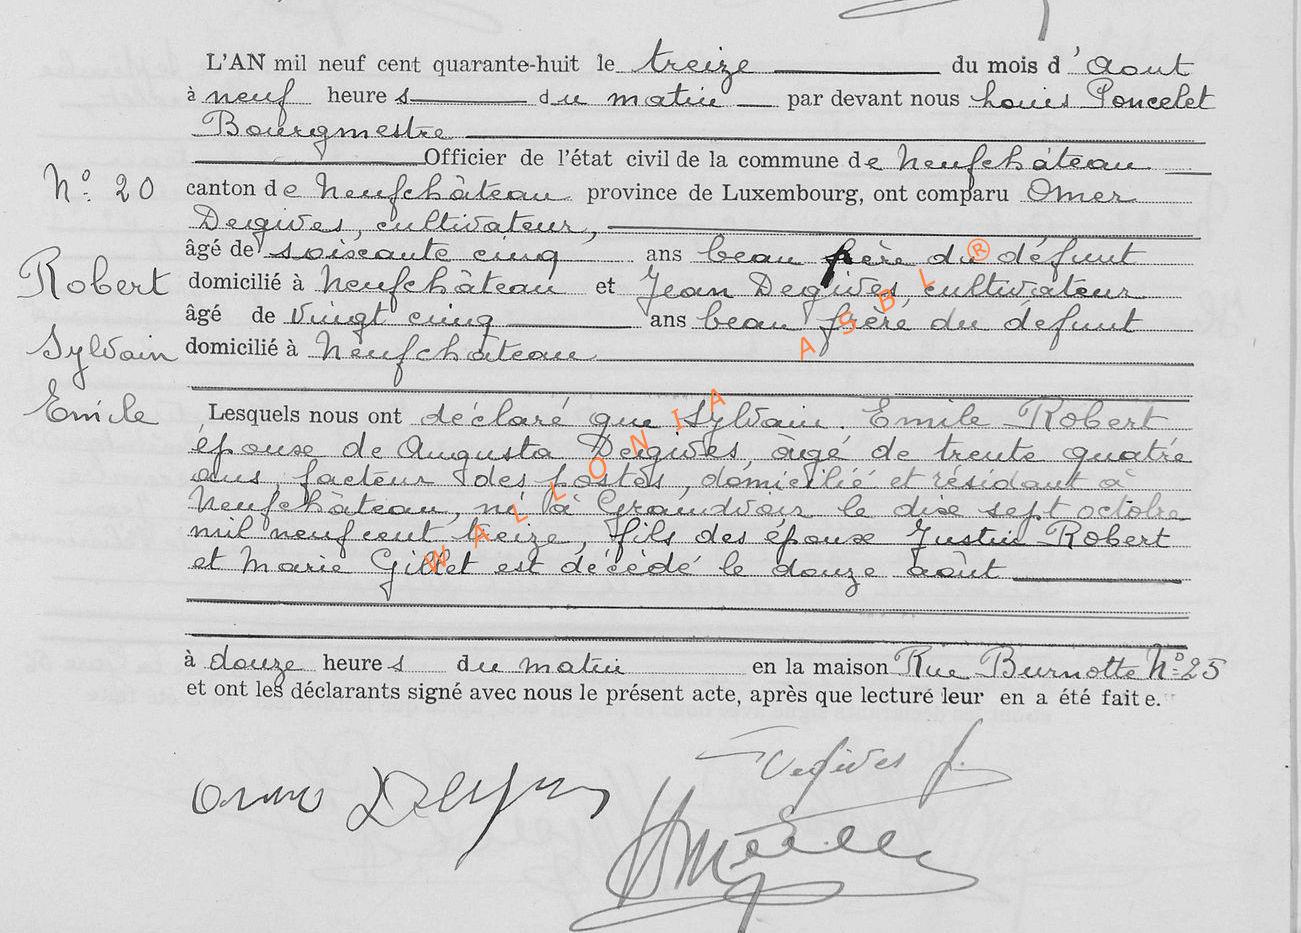 L'AN mil neuf cent quarante-huit le treize du mois d'Aout
à neuf heures du matin par devant nous Louis Poncelet
Bourgmestre
Officier de l'état civil de la commune de Neufchâteau
N° 20 canton de Neufchâteau province de Luxembourg, ont comparu Omer
Degives, cultivateur,
âgé de soixante cinq ans beau frère du défunt
Robert domicilié à Neufchâteau et Jean Degives, cultivateur
âgé de vingt cinq ans beau frère du défunt
Sylvain domicilié à Neufchâteau
Emile Lesquels nous ont déclaré que Sylvain Emile Robert
époux de Augusta Degives, âgé de trente quatre
ans, facteur des postes, domicilié et résidant à
Neufchâteau, né à Grandvoir le dix sept octobre
mil neuf cent treize, fils des époux Justin Robert
et Marie Gillet est décédé le douze août
à douze heures du matin en la maison Rue Burnotte N° 25
et ont les déclarants signé avec nous le présent acte, après que lecture leur en a été faite.
Degives J.
Omer Degives
WALLONIA ASBL ®